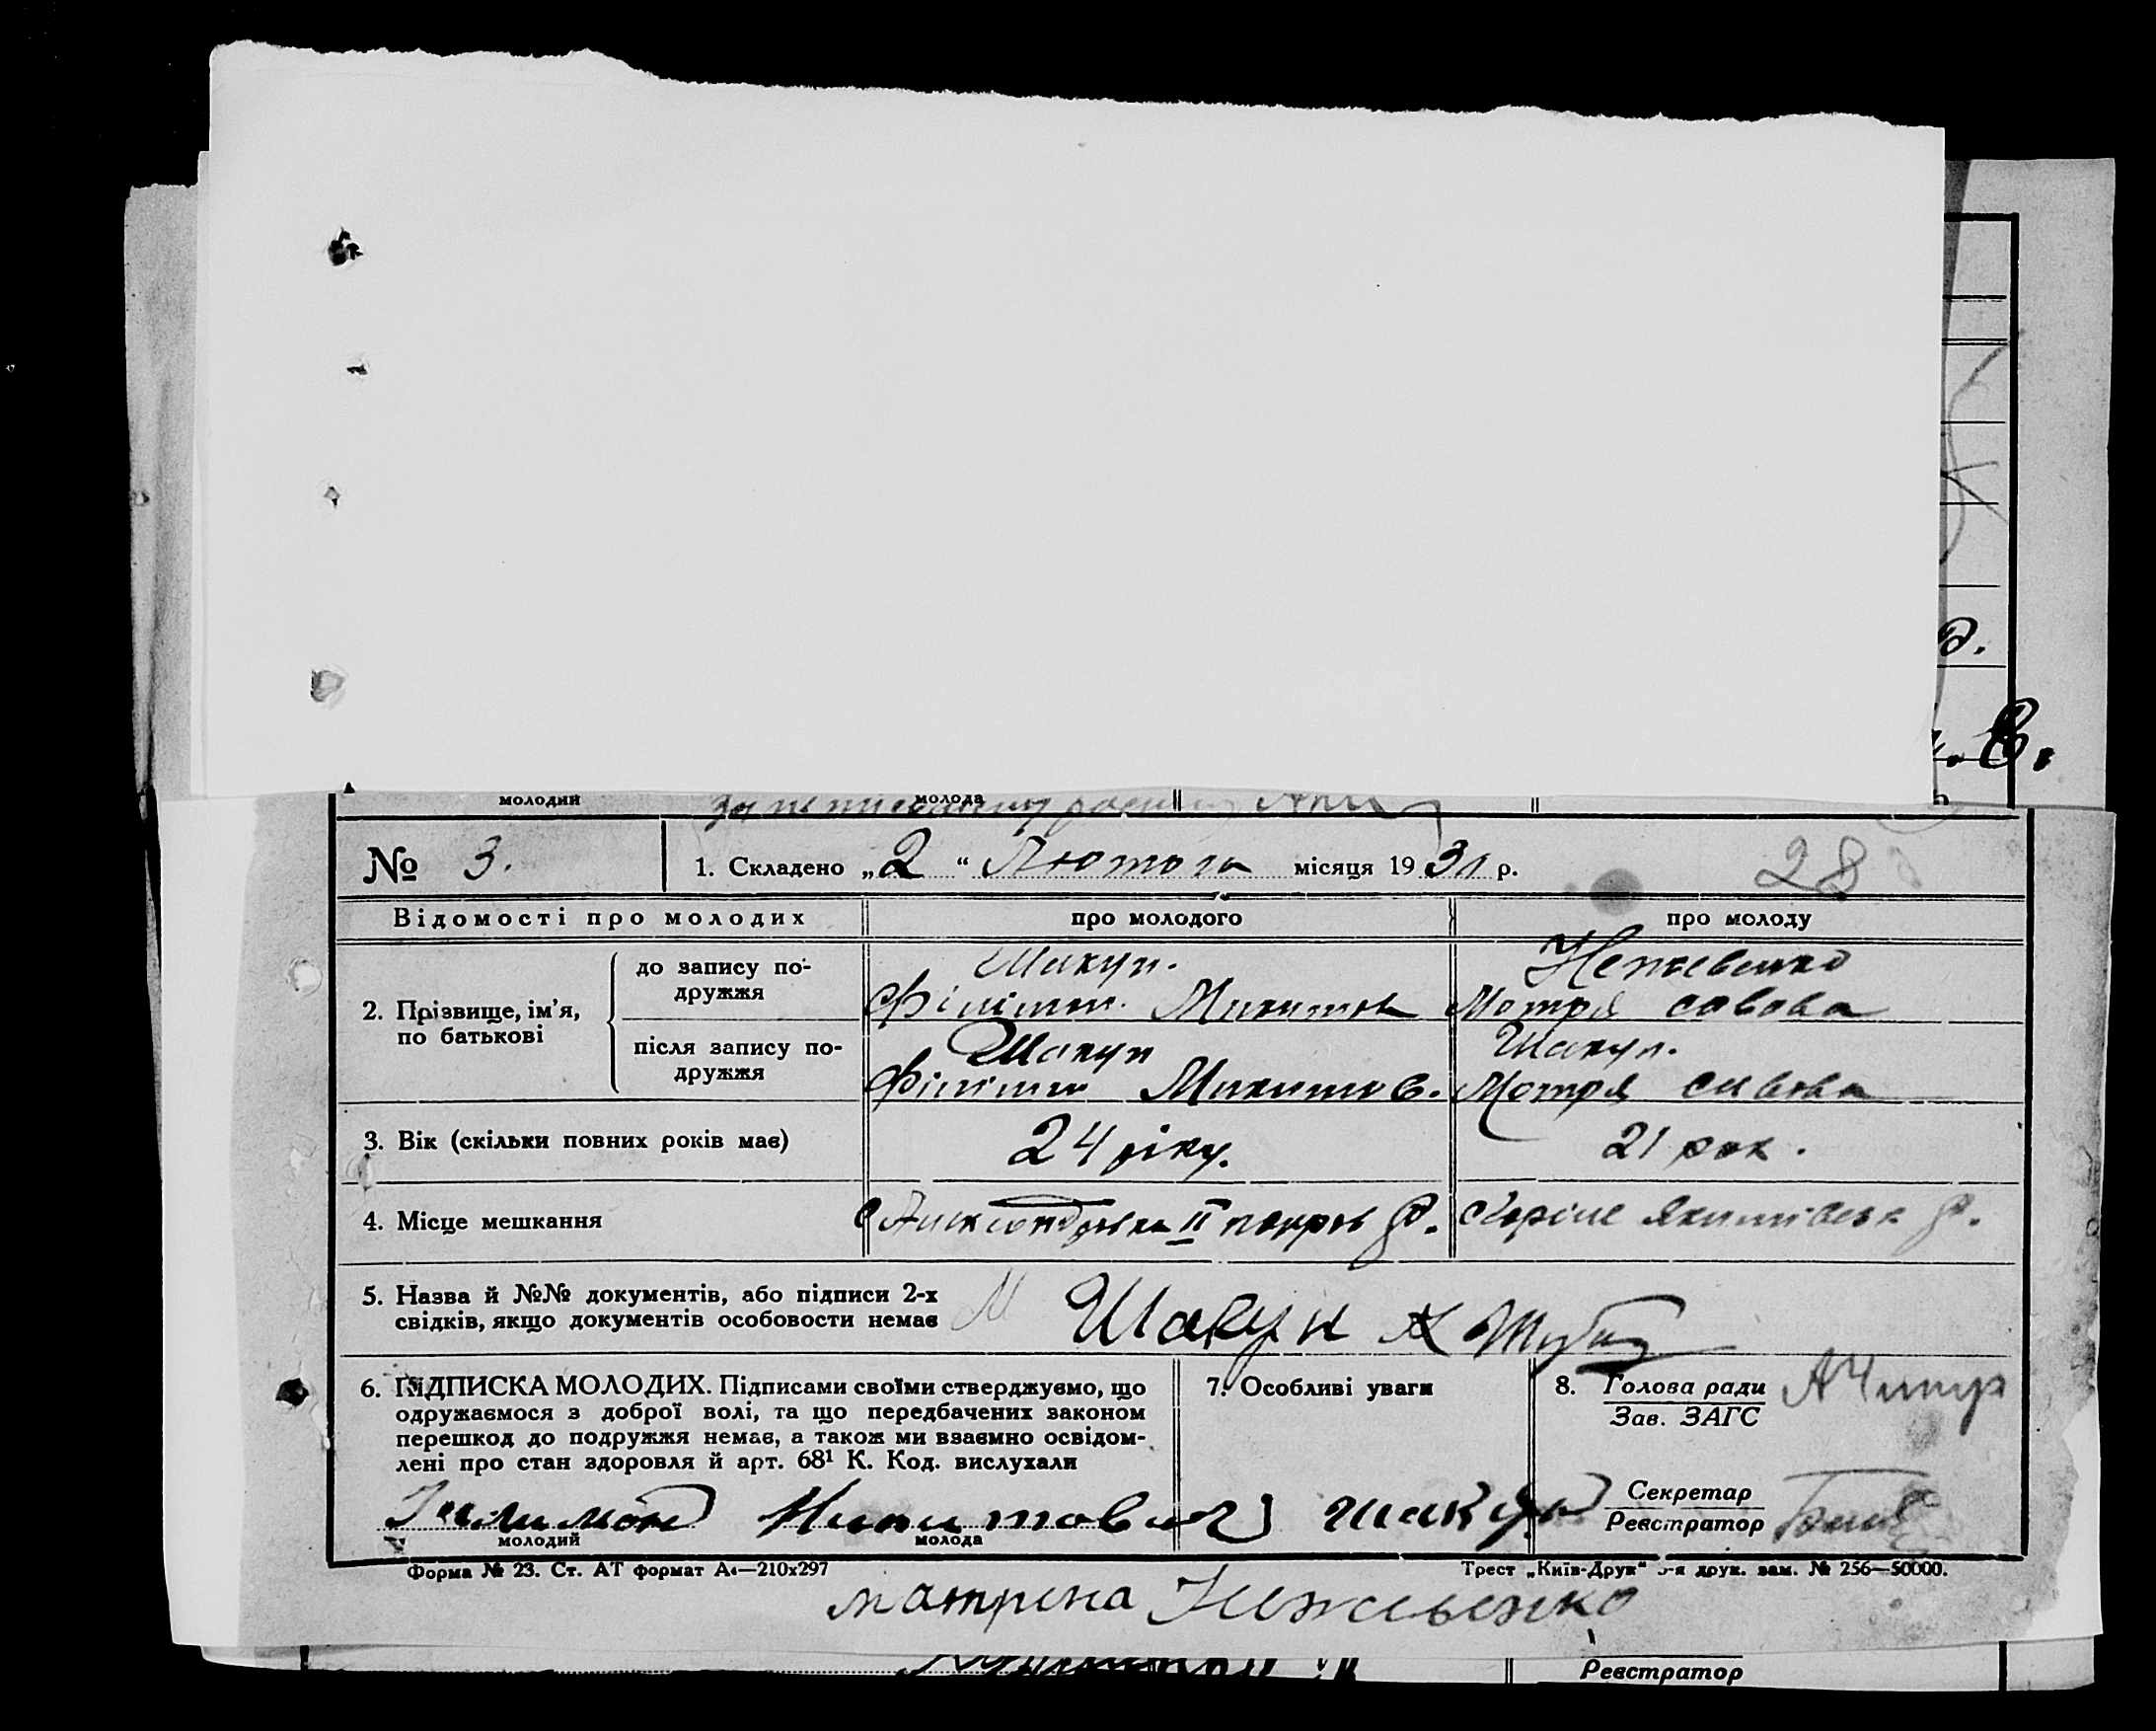 молодий молода
№ 3. 1. Складено „ 2 “ Лютого місяця 19 31 р. 28
Відомості про молодих про молодого про молоду
2. Прізвище, ім'я, по батькові
до запису подружжя
Шакун. Нежевенко
Микитов Мотря савова
після запису подружжя
Шакун Шакун.
Микитов. Мотря савова
3. Вік (скільки повних років має) 24 ріку. 21 рок.
4. Місце мешкання II покров р. якимівськ р.
5. Назва й №№ документів, або підписи 2-х
свідків, якщо документів особовости немає Шакун
6. ПІДПИСКА МОЛОДИХ. Підписами своїми стверджуємо, що
одружаємося з доброї волі, та що передбачених законом
перешкод до подружжя немає, а також ми взаємно освідом-
лені про стан здоровля й арт. 68¹ К. Код. вислухали
7. Особливі уваги
8. Голова ради
Зав. ЗАГС
Секретар
Реєстратор
Никитович шакун
молодий молода
Форма № 23. Ст. АТ формат А4—210х297 Трест „Київ-Друк“ друк. зам. № 256—50000.
матрена Нежевенко
Реєстратор